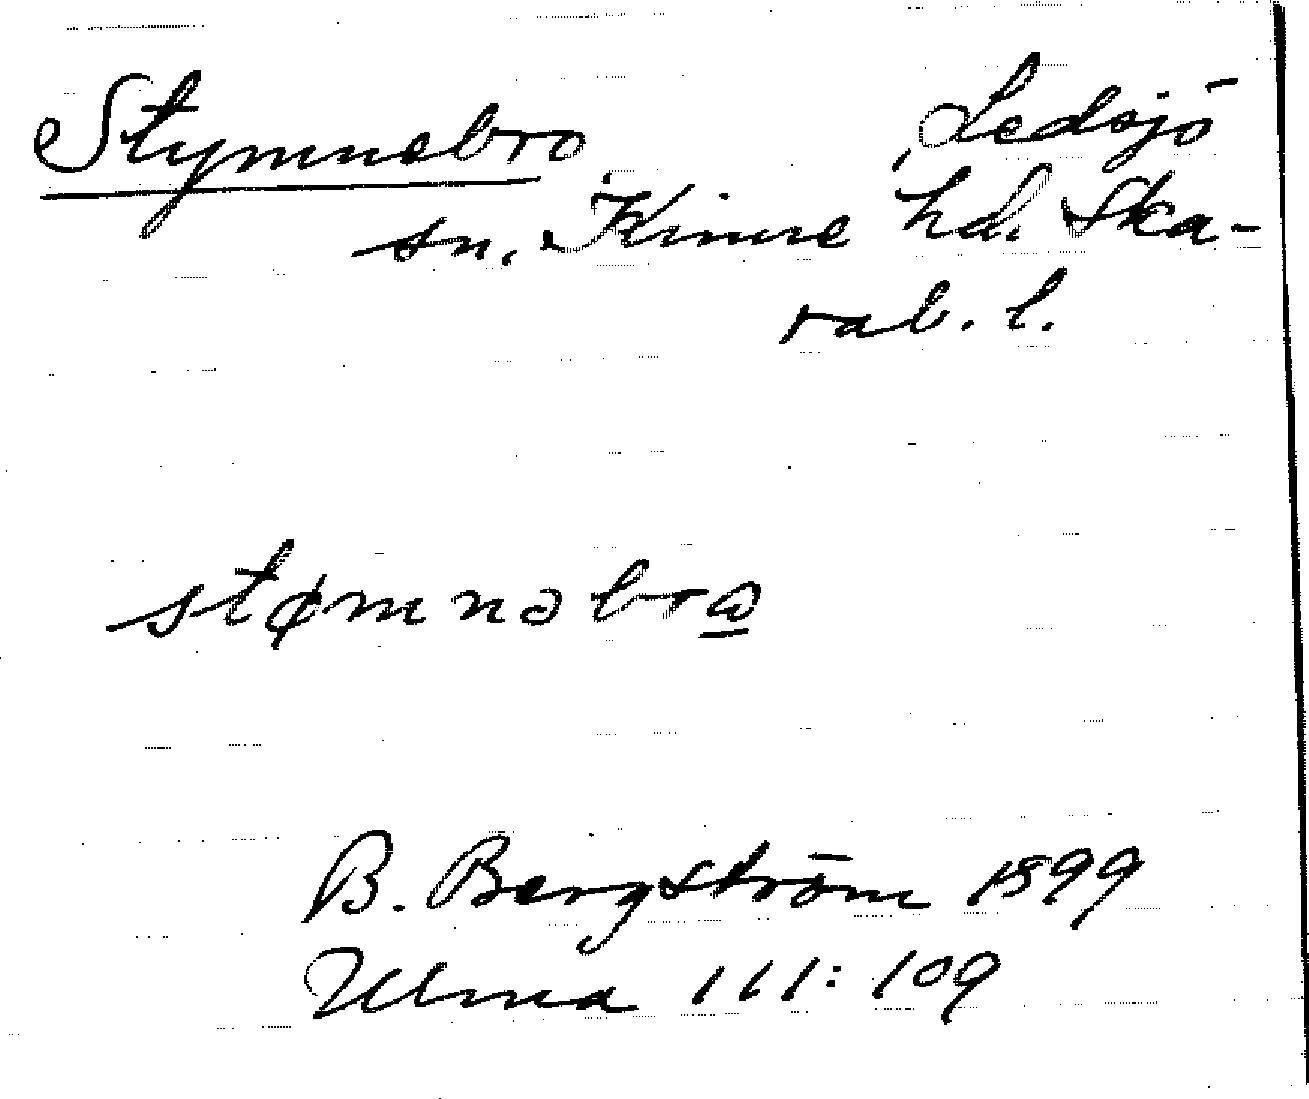 Stymnebro Ledsjö
sn. Kinne hd. Ska-
rab. l.
stømnəbrω
B. Bergström 1899
Ulma 111:109